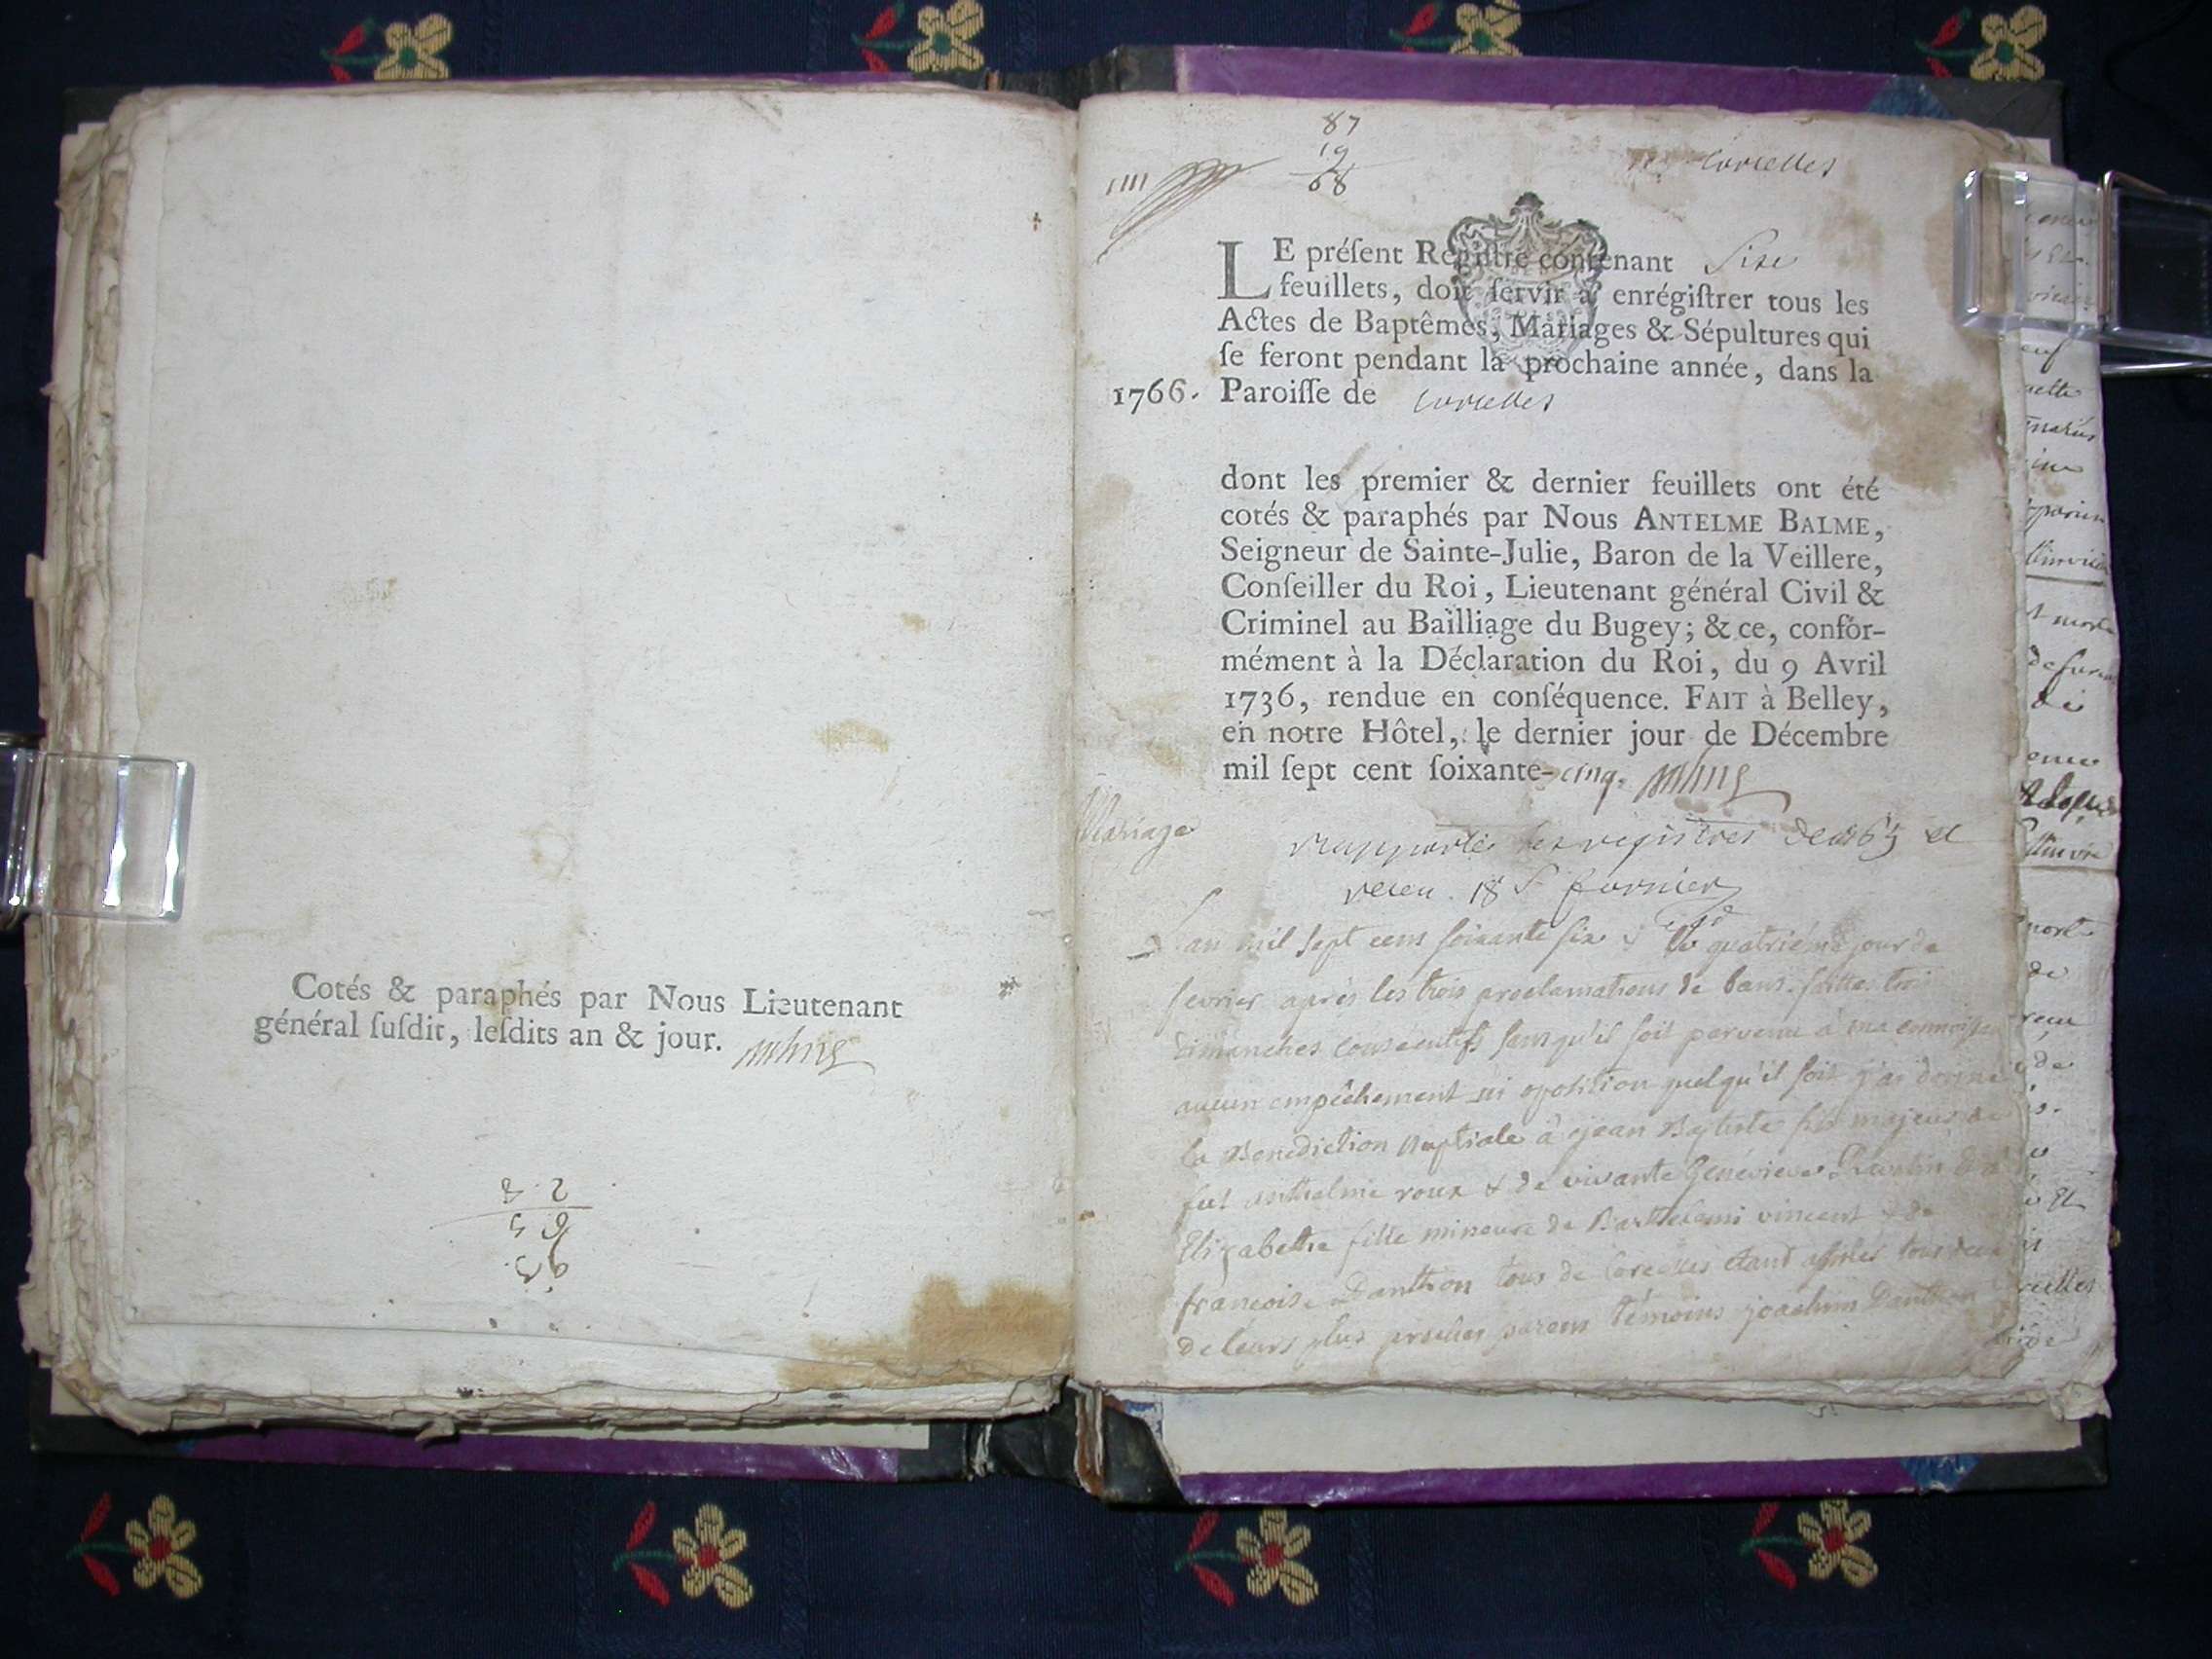 Cotés & paraphés par Nous Lieutenant
général ſuſdit, leſdits an & jour.
87
19
68
Corcelles
LE préſent Regiſtre contenant Sixe
feuillets, doit ſervir à enrégiſtrer tous les
Actes de Baptêmes, Mariages & Sépultures qui
ſe feront pendant la prochaine année, dans la
1766. Paroiſſe de Corcelles
dont les premier & dernier feuillets ont été
cotés & paraphés par Nous ANTELME BALME,
Seigneur de Sainte-Julie, Baron de la Veillere,
Conſeiller du Roi, Lieutenant général Civil &
Criminel au Bailliage du Bugey; & ce, confor-
mément à la Déclaration du Roi, du 9 Avril
1736, rendue en conſéquence. FAIT à Belley,
en notre Hôtel, le dernier jour de Décembre
mil ſept cent ſoixante-cinq.
Mariage
rapporté les registres de 65 et
receu 18 S fornier
Lan mil sept cens soixante six & le quatriéme jour de
fevrier aprés les trois proclamations de bans faittes trois
dimanches consecutifs sans qu'il soit parvenu à ma connoissan
aucun empêchement ni oposition quelqu'il soit j'ai donné
la Benediction Nuptiale à jean Baptiste fils majeur de
fut Anthelme roux & de vivante Genevieve
Elizabethe fille mineure de Barthelemi vincent & de
françoise Danthon tous de Corcelles étant assistés tous deux
de leurs plus proches parens témoins joachim Danthon